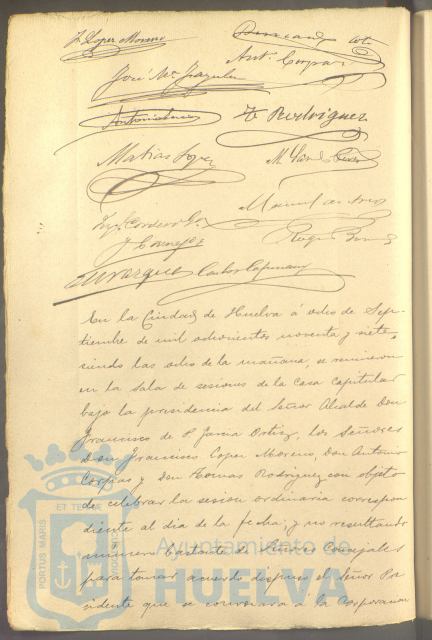 F. Lopez Moreno
Ant. Corpas
José Mª
F. Rodriguez
Matias Lopez
M.
Manuel
J. Cornejo
Roger
E. Vazquez Carlos
En la Ciudad de Huelva á ocho de Sep-
tiembre de mil ochocientos noventa y siete,
siendo las ocho de la mañana, se reunieron
en la sala de sesiones de la casa capitular
bajo la presidencia del Señor Alcalde Don
Francisco de P. Garcia Ortiz, los Señores
Don Francisco Lopez Moreno, Don Antonio
Corpas y Don Tomas Rodriguez con objeto
de celebrar la sesion ordinaria correspon
diente al dia de la fecha, y no resultando
numero bastante de Señores Concejales
para tomar acuerdo dispuso el Señor Pre
sidente que se convocara a la Corporacion
ET TERRAE
PORTUS MARIS
CUSTODIA
Ayuntamiento de
HUELVA